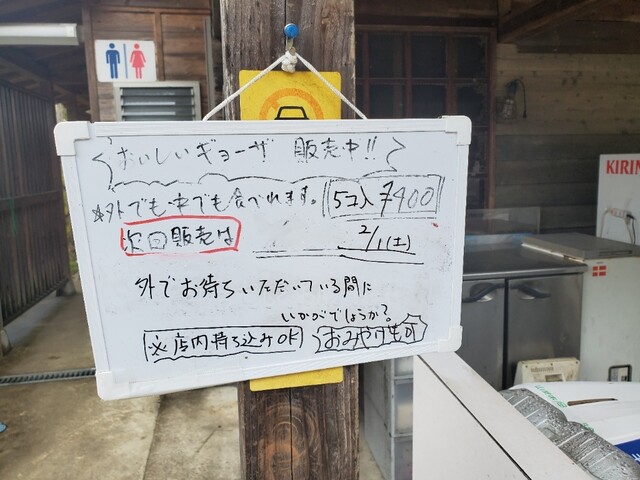 おいしいギョーザ 販売中!!
*外でも中でも食べれます。 5コ入 ¥400
次回販売は 2/1(土)
外でお待ちいただいている間に
いかがでしょうか?
※店内持ち込みOK! おみやげ生可
KIRIN